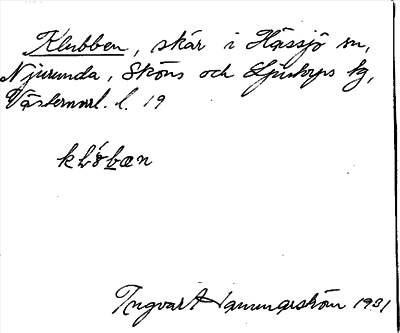 Klubben, skär i Hässjö sn,
Njurunda, Sköns och Ljustorps tg,
Västernorrl. l. 19
Ingvar Hammarström 1931